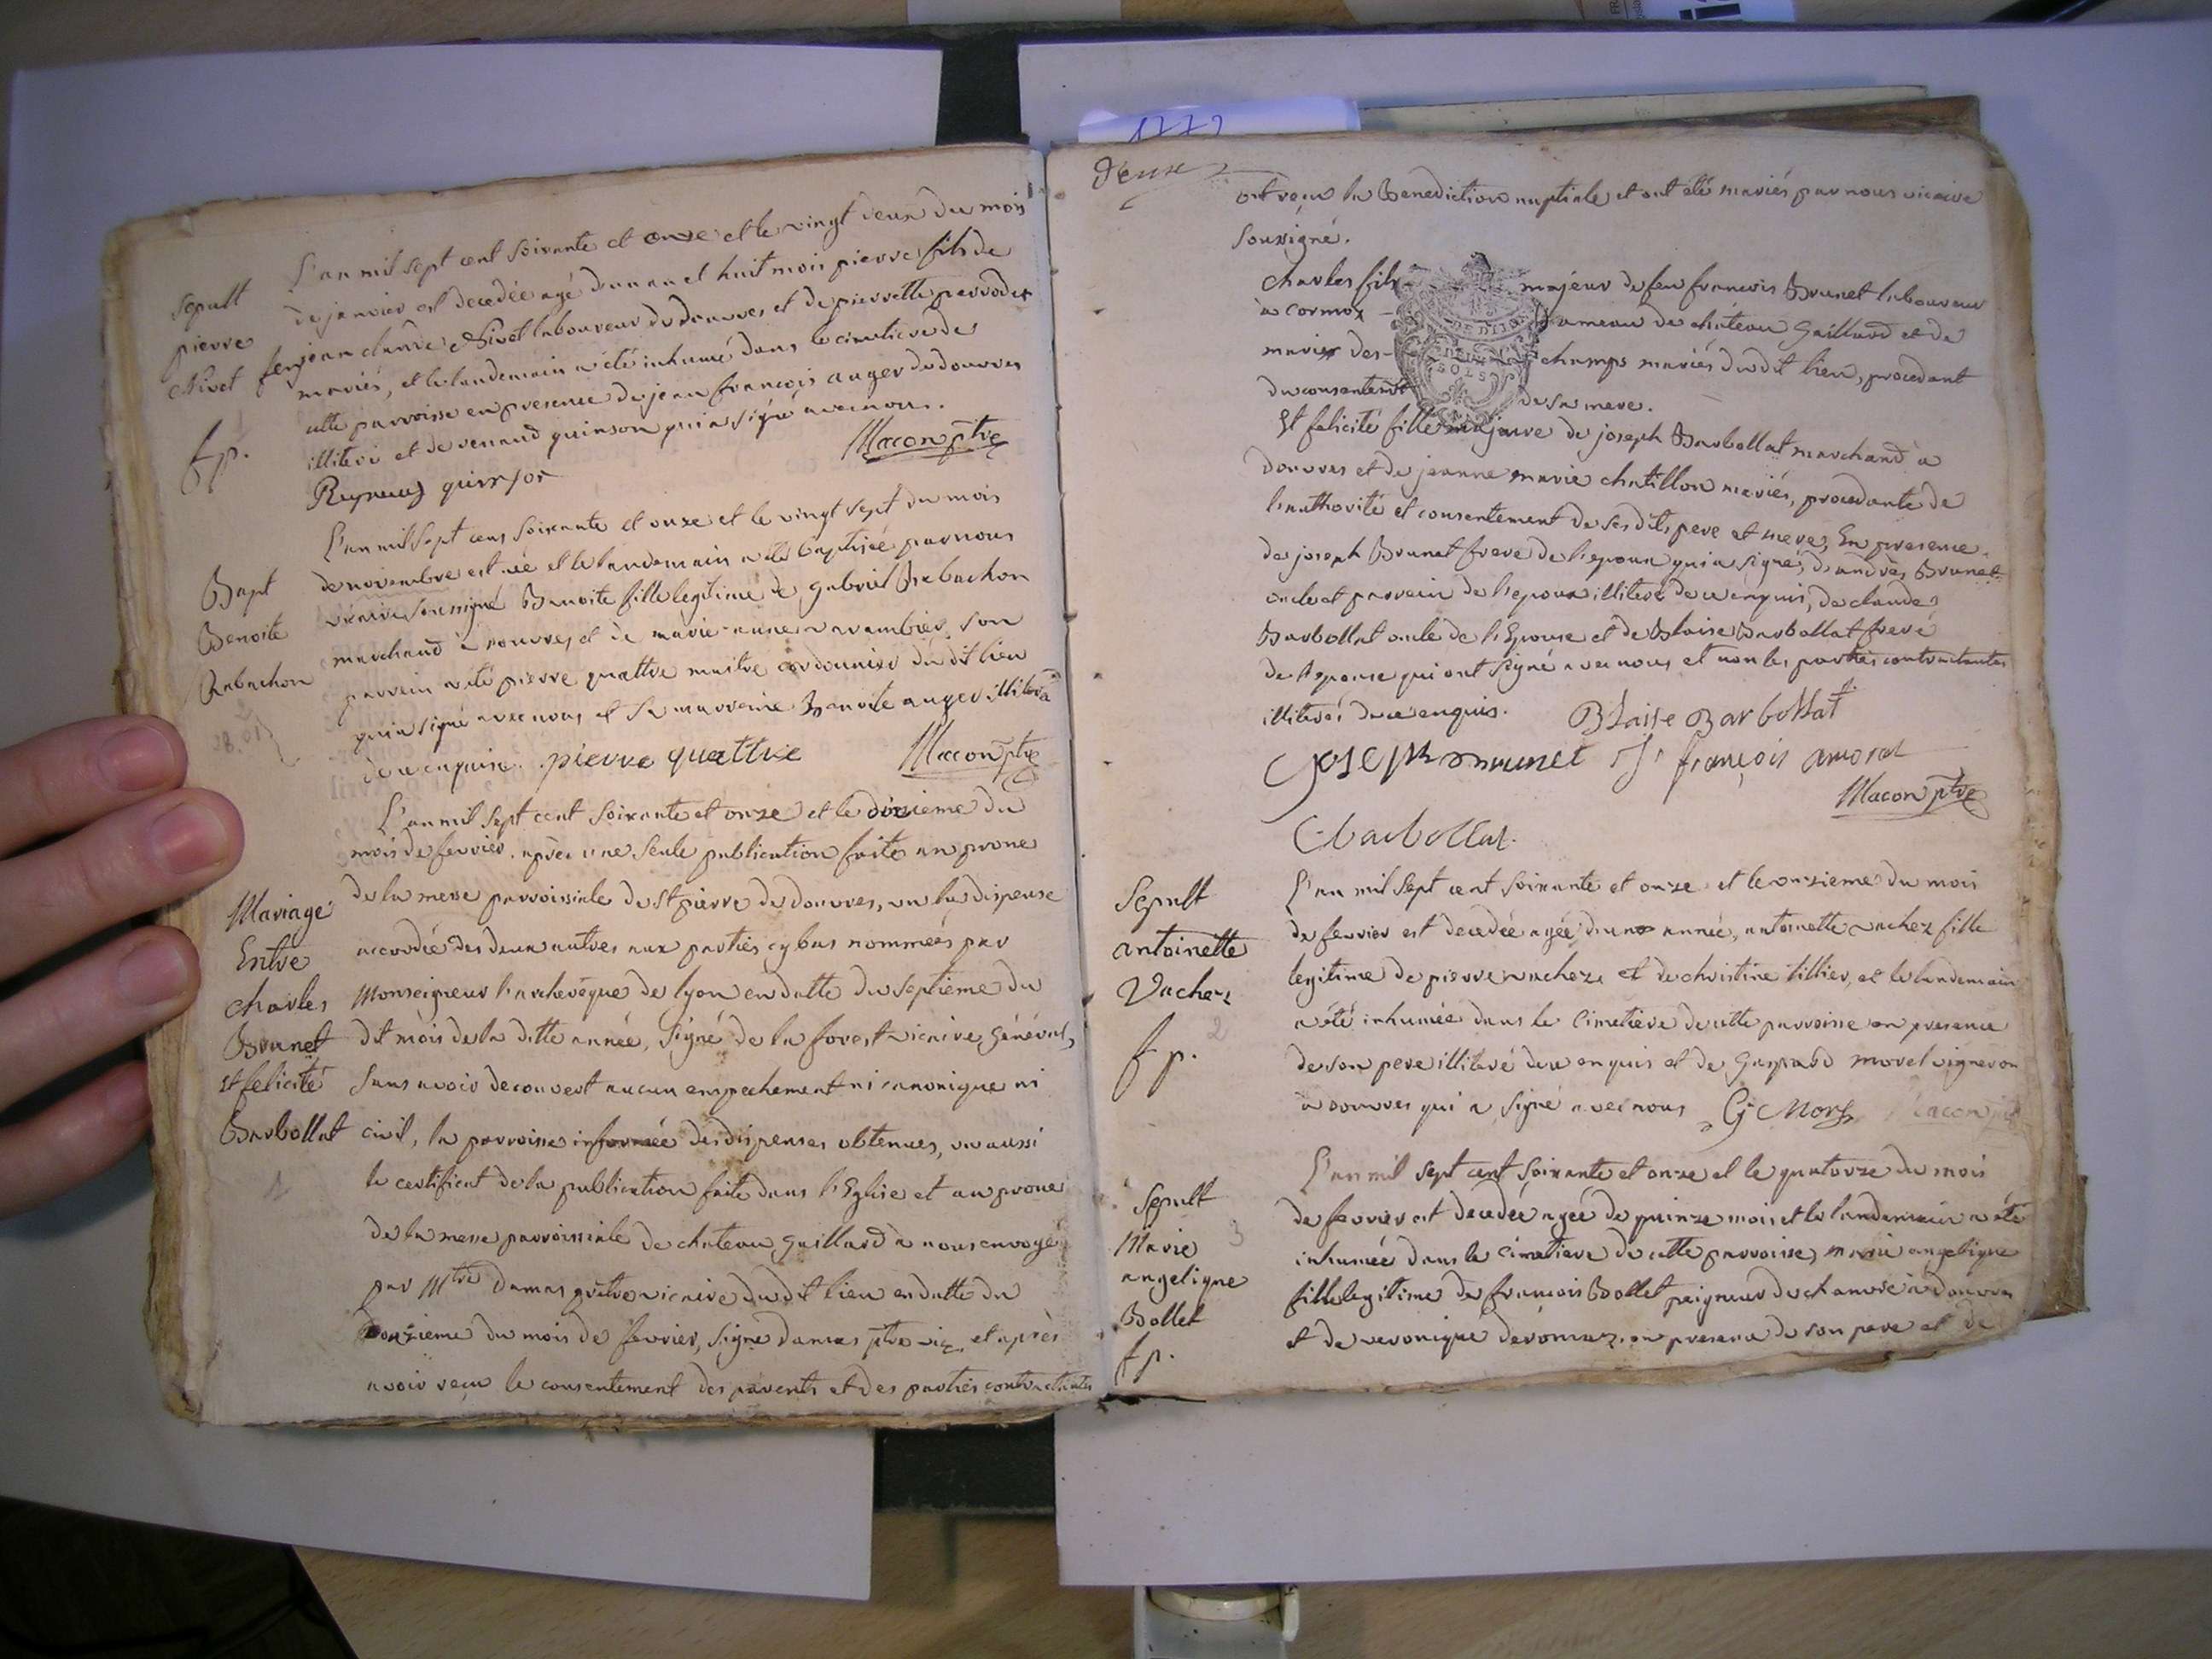 1772
Sepult
pierre
Nivet
fp.
L'an mil sept cent soixante et onze et le vingt deux du mois
de janvier est decedée agé d'un an et huit mois pierre fils de
feu jean claude Nivet laboureur de douvres et de pierrette perrodet
mariés, et le landemain a été inhumé dans le cimetiere de
cette parroisse en presence de jean françois auger de douvres
illiteré et de renaud quinson qui a signé avec nous.
Reynaud quinson
Macon ptre
Bapt
Benoite
Rabachon
L'an mil sept cens soixante et onze et le vingt sept du mois
de novembre est née et le landemain a été baptisée par nous
vicaire soussigné Benoite fille legitime de gabriel Rabachon
marchand à douvres et de marie anne varambier, son
parrein a été pierre quattre maitre cordonnier du dit lieu
qui a signé avec nous et sa marraine Benoite auger illiterée
de ce enquise. pierre quattre
Macon ptre
Mariage
Entre
charles
Brunet
Et felicité
Barbollat
L'an mil sept cent soixante et onze et le douzieme du
mois de fevrier, après une seule publication faite au prone
de la messe parroissiale de St pierre de douvres, vu la dispense
accordée des deux autres aux parties cy bas nommées par
Monseigneur l'archevêque de lyon en datte du septieme du
dit mois de la ditte année, signé de la forest vicaire général,
sans avoir decouvert aucun empechement ni canonique ni
civil, la parroisse informée des dispenses obtenues, vu aussi
le certificat de la publication faite dans l'Eglise et au prone
de la messe parroissiale de chateau gaillard à nous envoyé
par Mtre damas prêtre vicaire du dit lieu en datte du
onzieme du mois de fevrier, signé damas ptre vic. et après
avoir reçu le consentement des parents et des parties contractantes
deux
ont reçu la Benediction nuptiale et ont été mariés par nous vicaire
soussigné.
charles fils majeur de feu francois Brunet laboureur
à cormoz hameau de château Gaillard et de
marie des-champs mariés du dit lieu, procedant
du consentement de sa mere.
Et felicité fille majeure de joseph Barbollat marchand à
douvres et de jeanne marie chatillon mariés, procedante de
l'authorité et consentement de ses dits pere et mere, En presence
de joseph Brunet frere de l'epoux qui a signé, d'andré Brunet
oncle et parrein de l'epoux illiteré de ce enquis, de claude
Barbollat oncle de l'Epouse et de Blaise Barbollat frere
de l'epouse qui ont signé avec nous et non les parties contractantes
illiterés de ce enquis. BLaise Barbollat
joseph brunet J françois amorat
Macon ptre
C Barbollat.
Sepult
antoinette
Vachez
fp.
2
L'an mil sept cent soixante et onze et le onzieme du mois
de fevrier est decedée agée d'une année, antoinette vachez fille
legitime de pierre vachez et de christine tillier, et le landemain
a été inhumée dans le cimetiere de cette parroisse en presence
de son pere illiteré de ce enquis et de Gaspard morel vigneron
à douvres qui a signé avec nous G Morel Macon ptre
Sepult
Marie
angelique
Bollet
fp.
3
L'an mil sept cent soixante et onze et le quatorze du mois
de fevrier est decedée agée de quinze mois et le landemain a été
inhumée dans le cimetiere de cette parroisse, marie angelique
fille legitime de francois Bollet peigneur de chanvre à douvres
et de veronique en presence de son pere et de